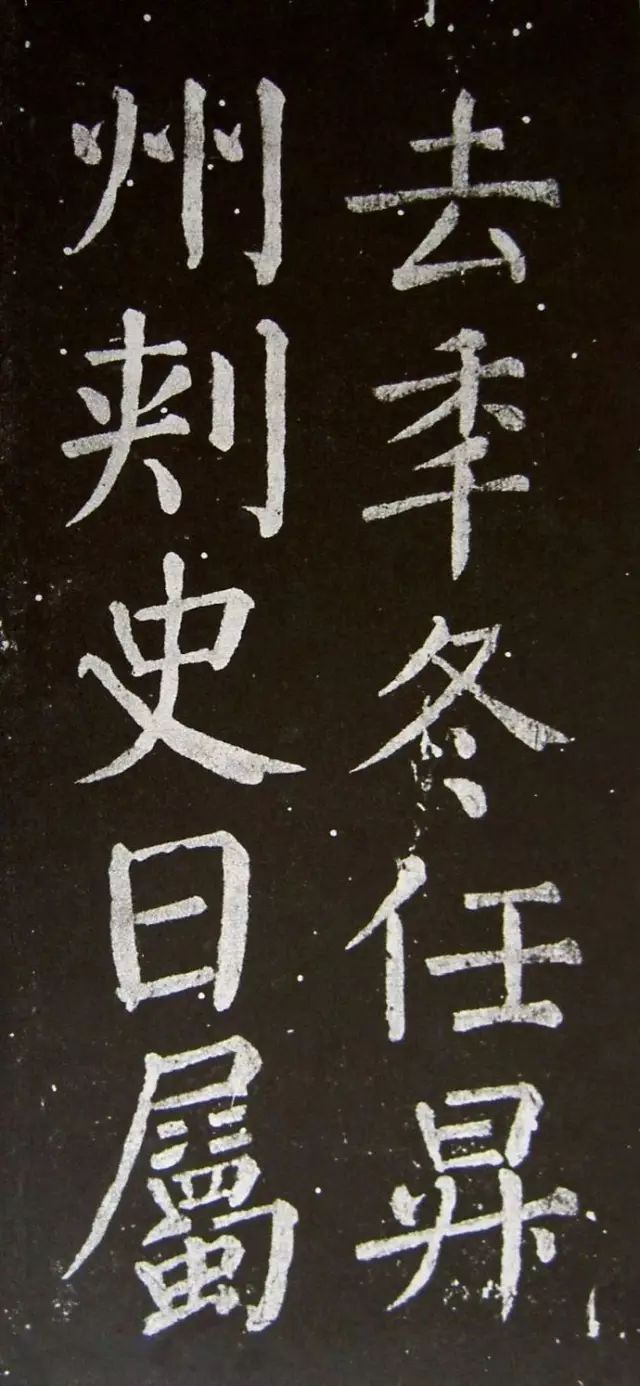 去秊冬任昇
州刾史日屬